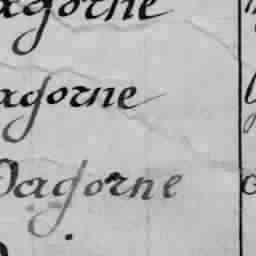 agorne
agorne
Dagorne